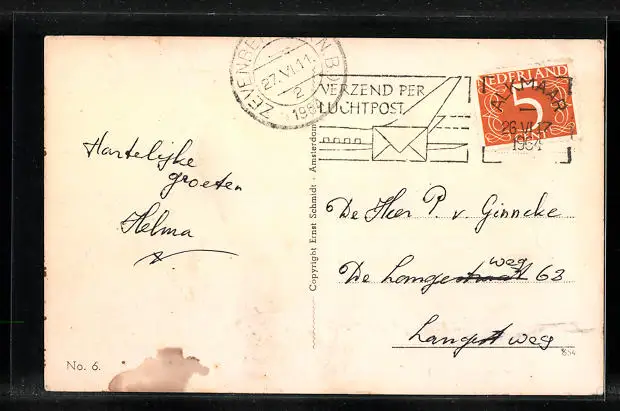 ZEVENBERGEN (N.B)
27.VI.11
2
1954
VERZEND PER
LUCHTPOST
NEDERLAND
5
CENT
ALKMAAR
26 VI 17
1954
Hartelijke
groeten
Helma
Copyright Ernst Schmidt - Amsterdam
De Heer P. v. Ginneke
weg
De Langestraat 63
Langeweg
No. 6.
854